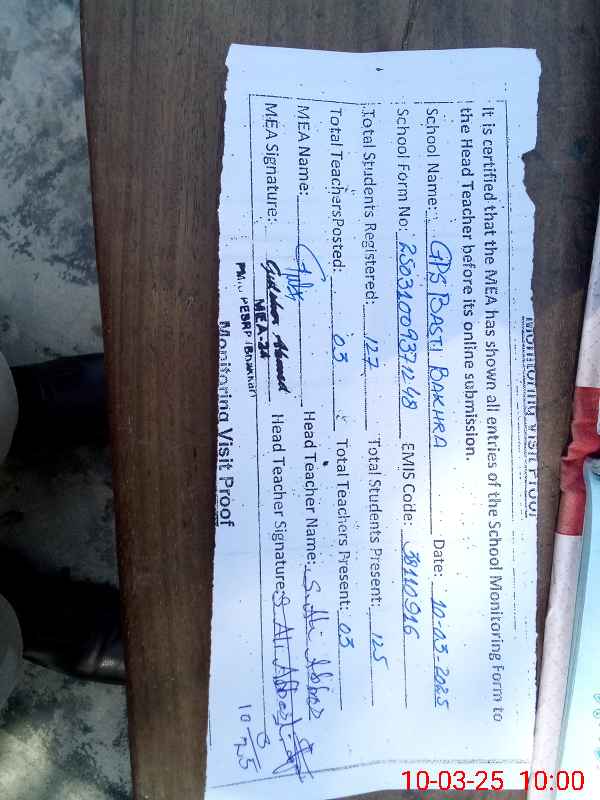 Monitoring Visit Proof
It is certified that the MEA has shown all entries of the School Monitoring Form to
the Head Teacher before its online submission.
School Name: GPS BASTI BAKHRA Date: 10-03-2025
School Form No: EMIS Code: 38110916
Total Students Registered: 127 Total Students Present: 125
Total TeachersPosted: 03 Total Teachers Present: 03
MEA Name: Head Teacher Name:
MEA Signature: Head Teacher Signature:
MEA-
PMIU PESRP (Bhakkar)
10 3 25
Monitoring Visit Proof
10-03-25 10:00